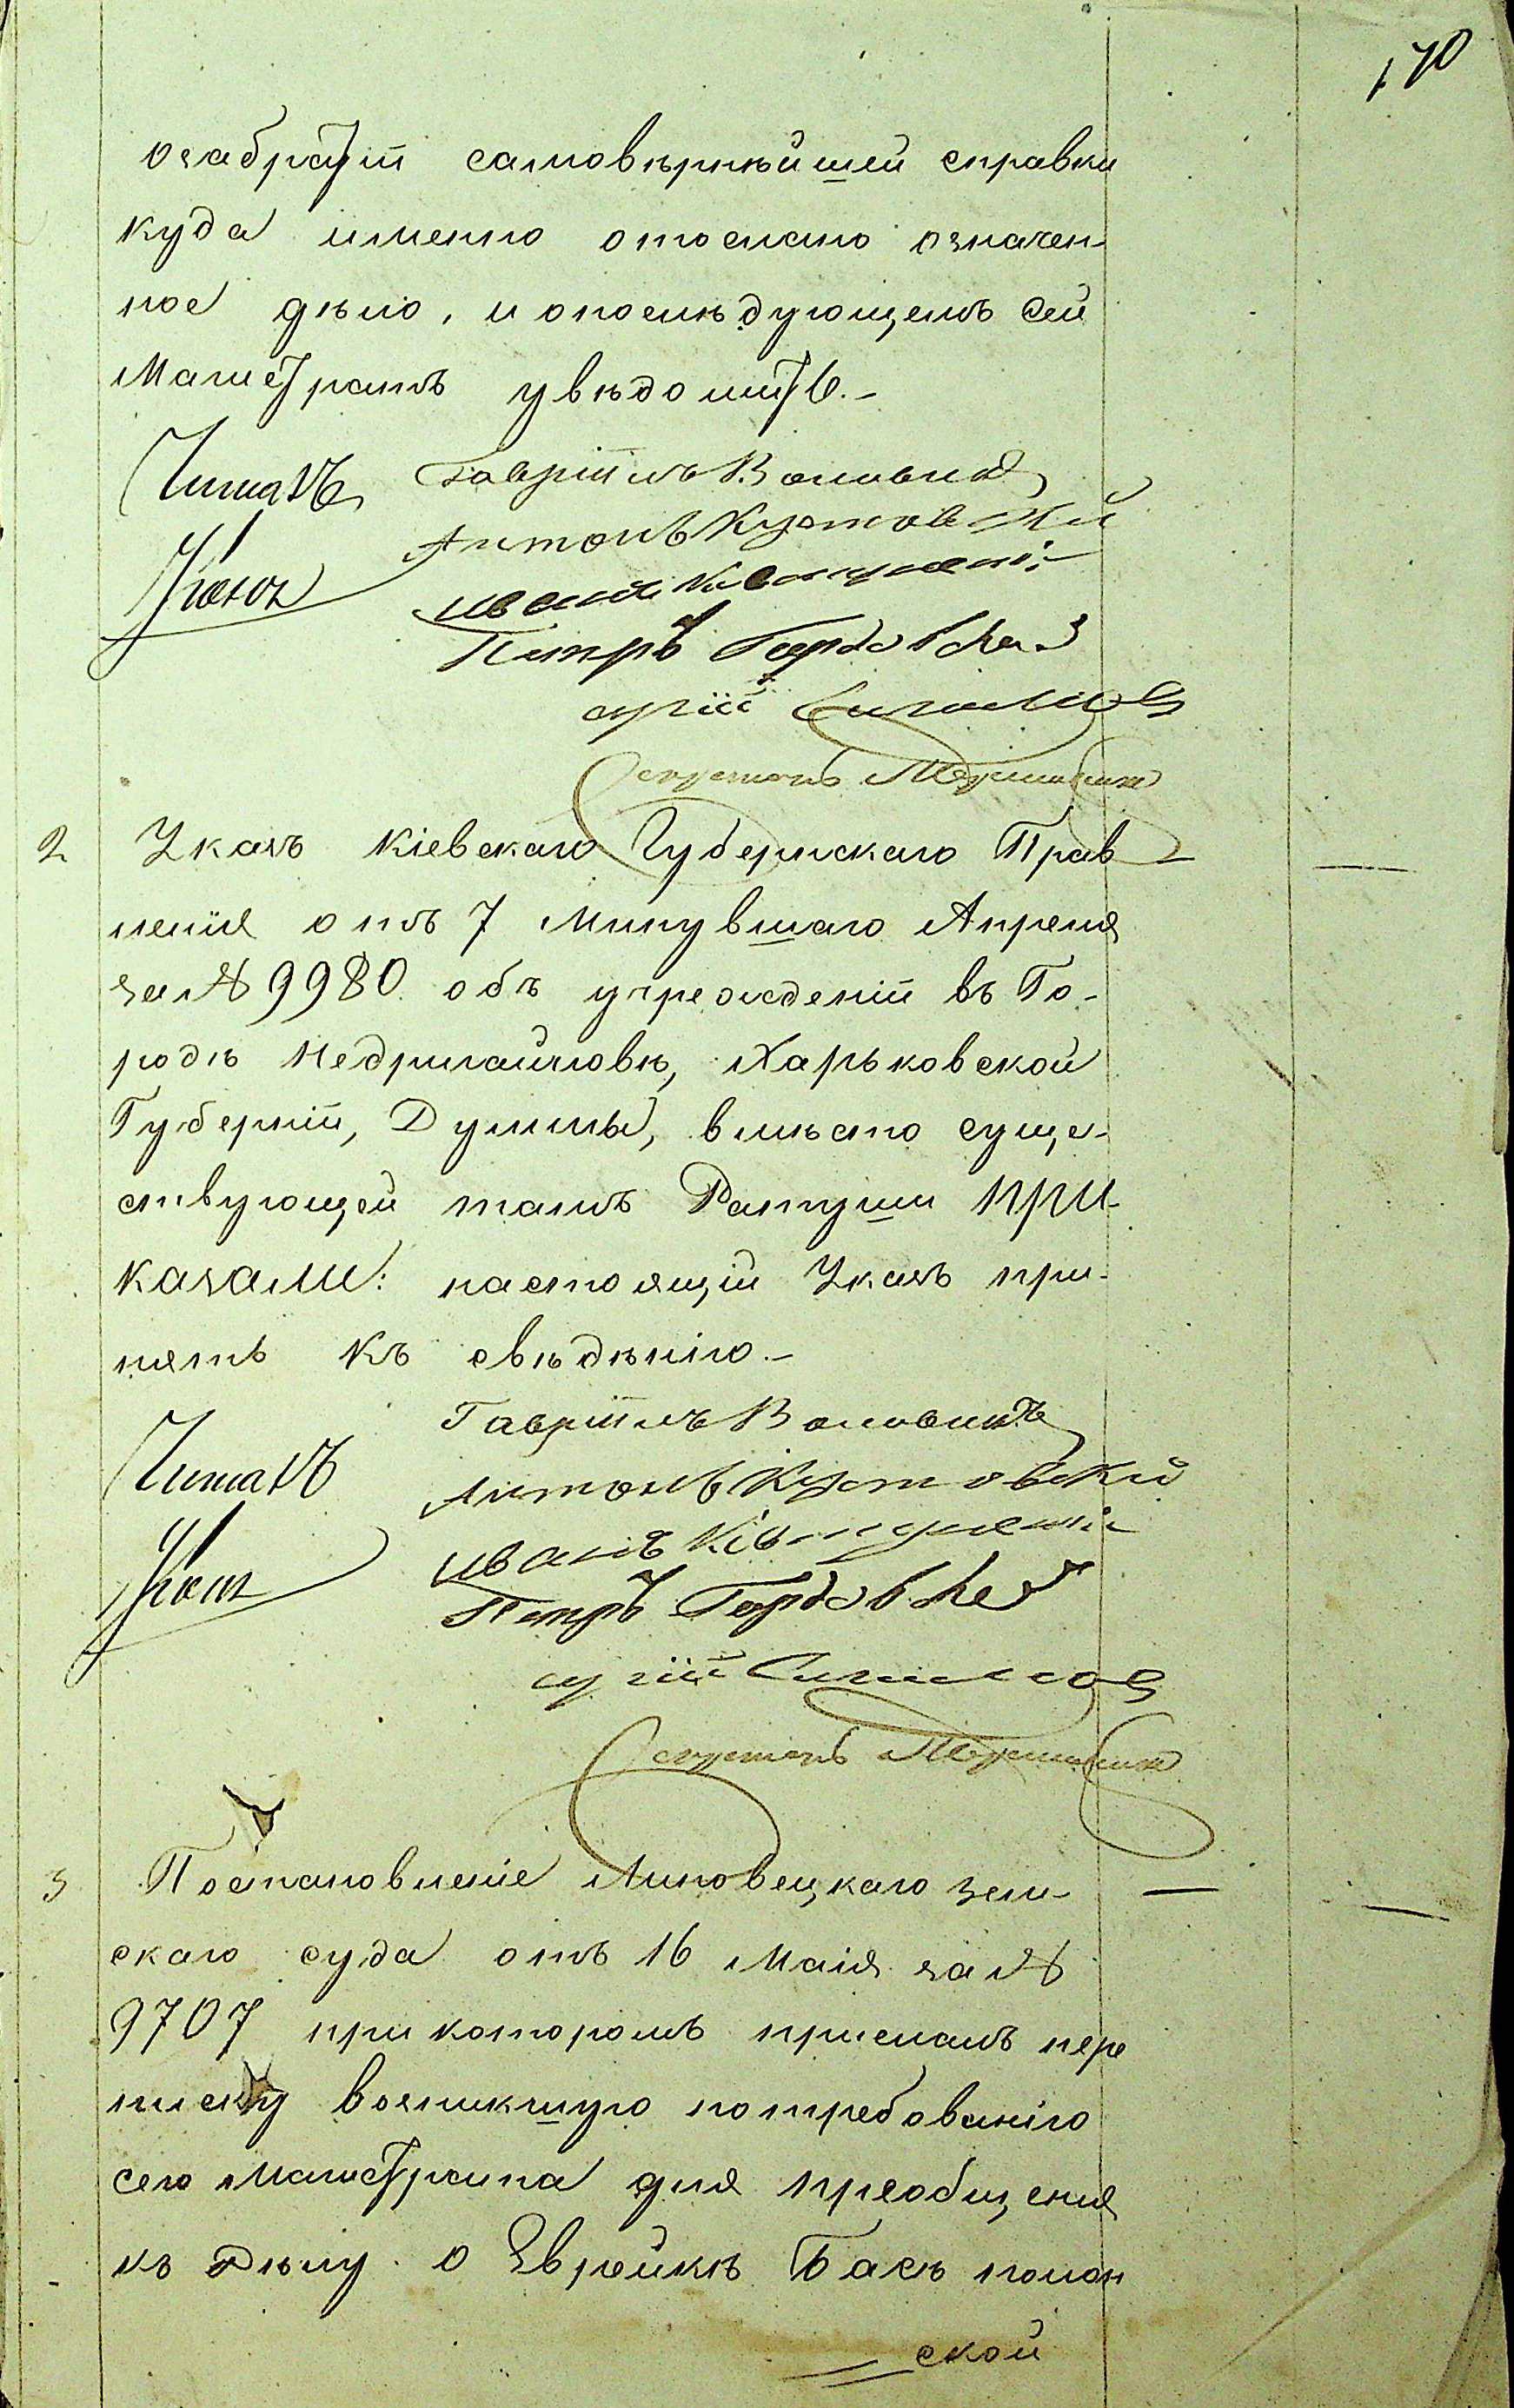 170
самовѣрнѣйшей справки
куда именно отослано означен-
ное дѣло, и опослѣдующемъ сей
Магистратъ увѣдомить.-
Читалъ Гавріилъ Воловикъ
Антонъ Кустовскій
Иванъ
Петръ
Секретарь
2 Указъ Кіевскаго Губернскаго Прав
ленія отъ 7 минувшаго Апреля
за № 9980 объ учрежденіи въ Го-
родѣ Недригайловѣ, Харьковской
Губерніи, Думмы, вмѣсто суще-
ствующей тамъ Ратуши при-
казали: настоящій Указъ при-
нять къ свѣдѣнію.-
Читалъ Гавріилъ Воловикъ
Антонъ Кустовскій
Иванъ
Петръ
Секретарь
3 Постановленіе Липовецкаго зем-
скаго суда отъ 16 Маія за №
9707 при которомъ присланъ пере
писку возникшую потребованію
сего Магистрата для преобщенія
къ дѣлу о Еврейкѣ Басѣ
ской